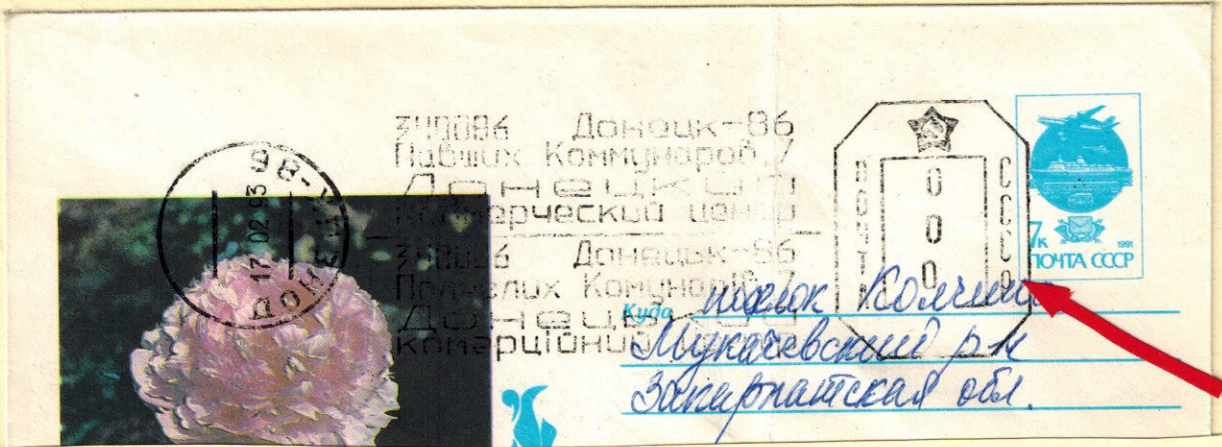 340086 Донецк-86
Павших Коммунаров, 7
Донецкий
Коммерческий центр
340086 Донецьк-86
Полеглих Комунарів, 7
Донецький
комерційний
ДОНЕЦК-86
17 02 93
ПОЧТА СССР
000
7к
1991
ПОЧТА СССР
Куда поселок
Мукачевский р-н
Закарпатская обл.